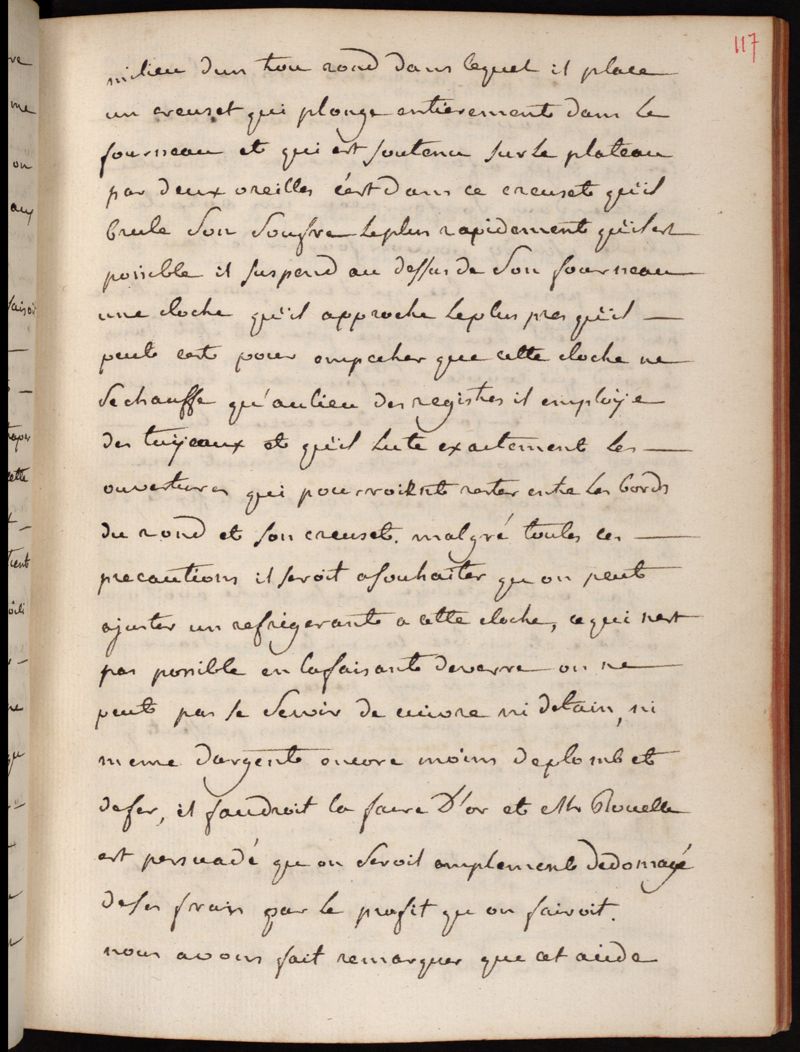 117
milieu dun trou rond dans lequel il place
un creuset qui plonge entierement dans le
fourneau et qui est soutenu sur le plateau
par deux oreilles c'est dans ce creuset qu'il
brule son soufre le plus rapidement qu'il est
possible il suspend au dessus de son fourneau
une cloche qu'il approche le plus pres qu'il —
peut cest pour empecher que cette cloche ne
sechauffe qu'au lieu des registres il employe
des tuyeaux et qu'il lute exactement les —
ouvertures qui pourroient rester entre les bords
du rond et son creuset. malgré toutes ces —
precautions il seroit a souhaiter qu on peut
ajuster un refrigerant a cette cloche, ce qui nest
pas possible en la faisant de verre on ne —
peut pas se servir de cuivre ni detain, ni
meme d'argent encore moins de plomb et
de fer, il faudroit la faire D'or et Mr Rouelle
est persuadé qu on seroit amplement dedomagé
de ses frais par le profit qu on fairoit.
nous avons fait remarquer que cet acide